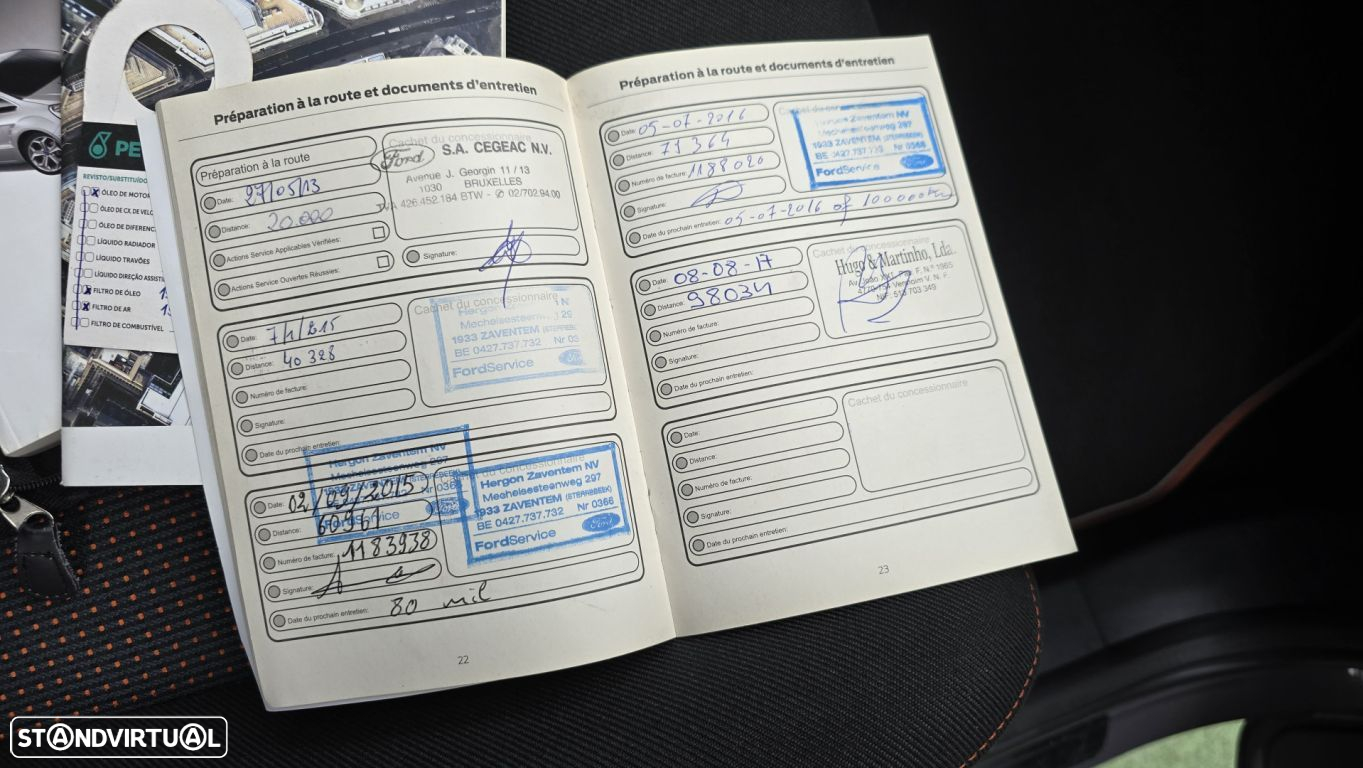 PE
REVISTO/SUBSTITUÍDO
ÓLEO DE MOTOR
ÓLEO DE CX DE VELOC
ÓLEO DE DIFERENC
LÍQUIDO RADIADOR
LÍQUIDO TRAVÕES
LÍQUIDO DIREÇÃO ASSISTI
FILTRO DE ÓLEO
FILTRO DE AR
FILTRO DE COMBUSTÍVEL
Préparation à la route et documents d'entretien
Préparation à la route
Date: 27/05/13
Distance: 20.000
Actions Service Applicables Vérifiées:
Actions Service Ouvertes Réussies:
Cachet du concessionnaire
Ford S.A. CEGEAC N.V.
Avenue J. Georgin 11 / 13
1030 BRUXELLES
TVA 426.452.184 BTW - 02/702.94.00
Signature:
Date: 7/1/2015
Distance: 40 328
Numéro de facture:
Signature:
Date du prochain entretien:
Cachet du concessionnaire
Hergon
Mechelsesteenw 29
1933 ZAVENTEM (STERREBEEK)
BE 0427.737.732 Nr 03
FordService
Hergon Zaventem NV
Mechelsesteenweg 297
Nr 0366
Date: 02/09/2015
Distance: 60961
Numéro de facture: 1183938
Signature:
Date du prochain entretien: 80 mil
Cachet du concessionnaire
Hergon Zaventem NV
Mechelsesteenweg 297
1933 ZAVENTEM (STERREBEEK)
BE 0427.737.732 Nr 0366
FordService Ford
22
Préparation à la route et documents d'entretien
Date: 05-07-2016
Distance: 71 364
Numéro de facture: 1188020
Signature:
Date du prochain entretien: 05-07-2016 of 100000km
Cachet du
Zaventem NV
Mechelsesteenweg 297
1933 ZAVENTEM (STERREBEEK)
BE 0427.737.732 Nr 0366
FordService
Date: 08-08-17
Distance: 98034
Numéro de facture:
Signature:
Date du prochain entretien:
Cachet du concessionnaire
Hugo & Martinho, Lda.
Av. João XXI, F, N.º 1965
4770-754 Vermoim V. N. F.
NIF: 513 703 349
Date:
Distance:
Numéro de facture:
Signature:
Date du prochain entretien:
Cachet du concessionnaire
23
STANDVIRTUAL